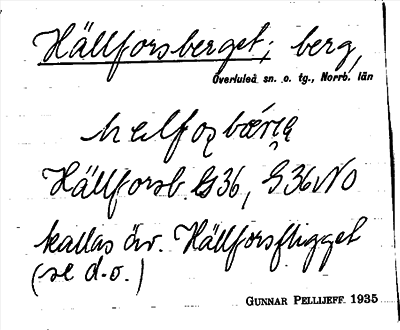 Hällforsberget; berg,
Överluleå sn. o. tg., Norrb. län
Hällforsb. G36, G36NO
kallas äv. Hällforsfligget
(se d.o.)
GUNNAR PELLIJEFF 1935